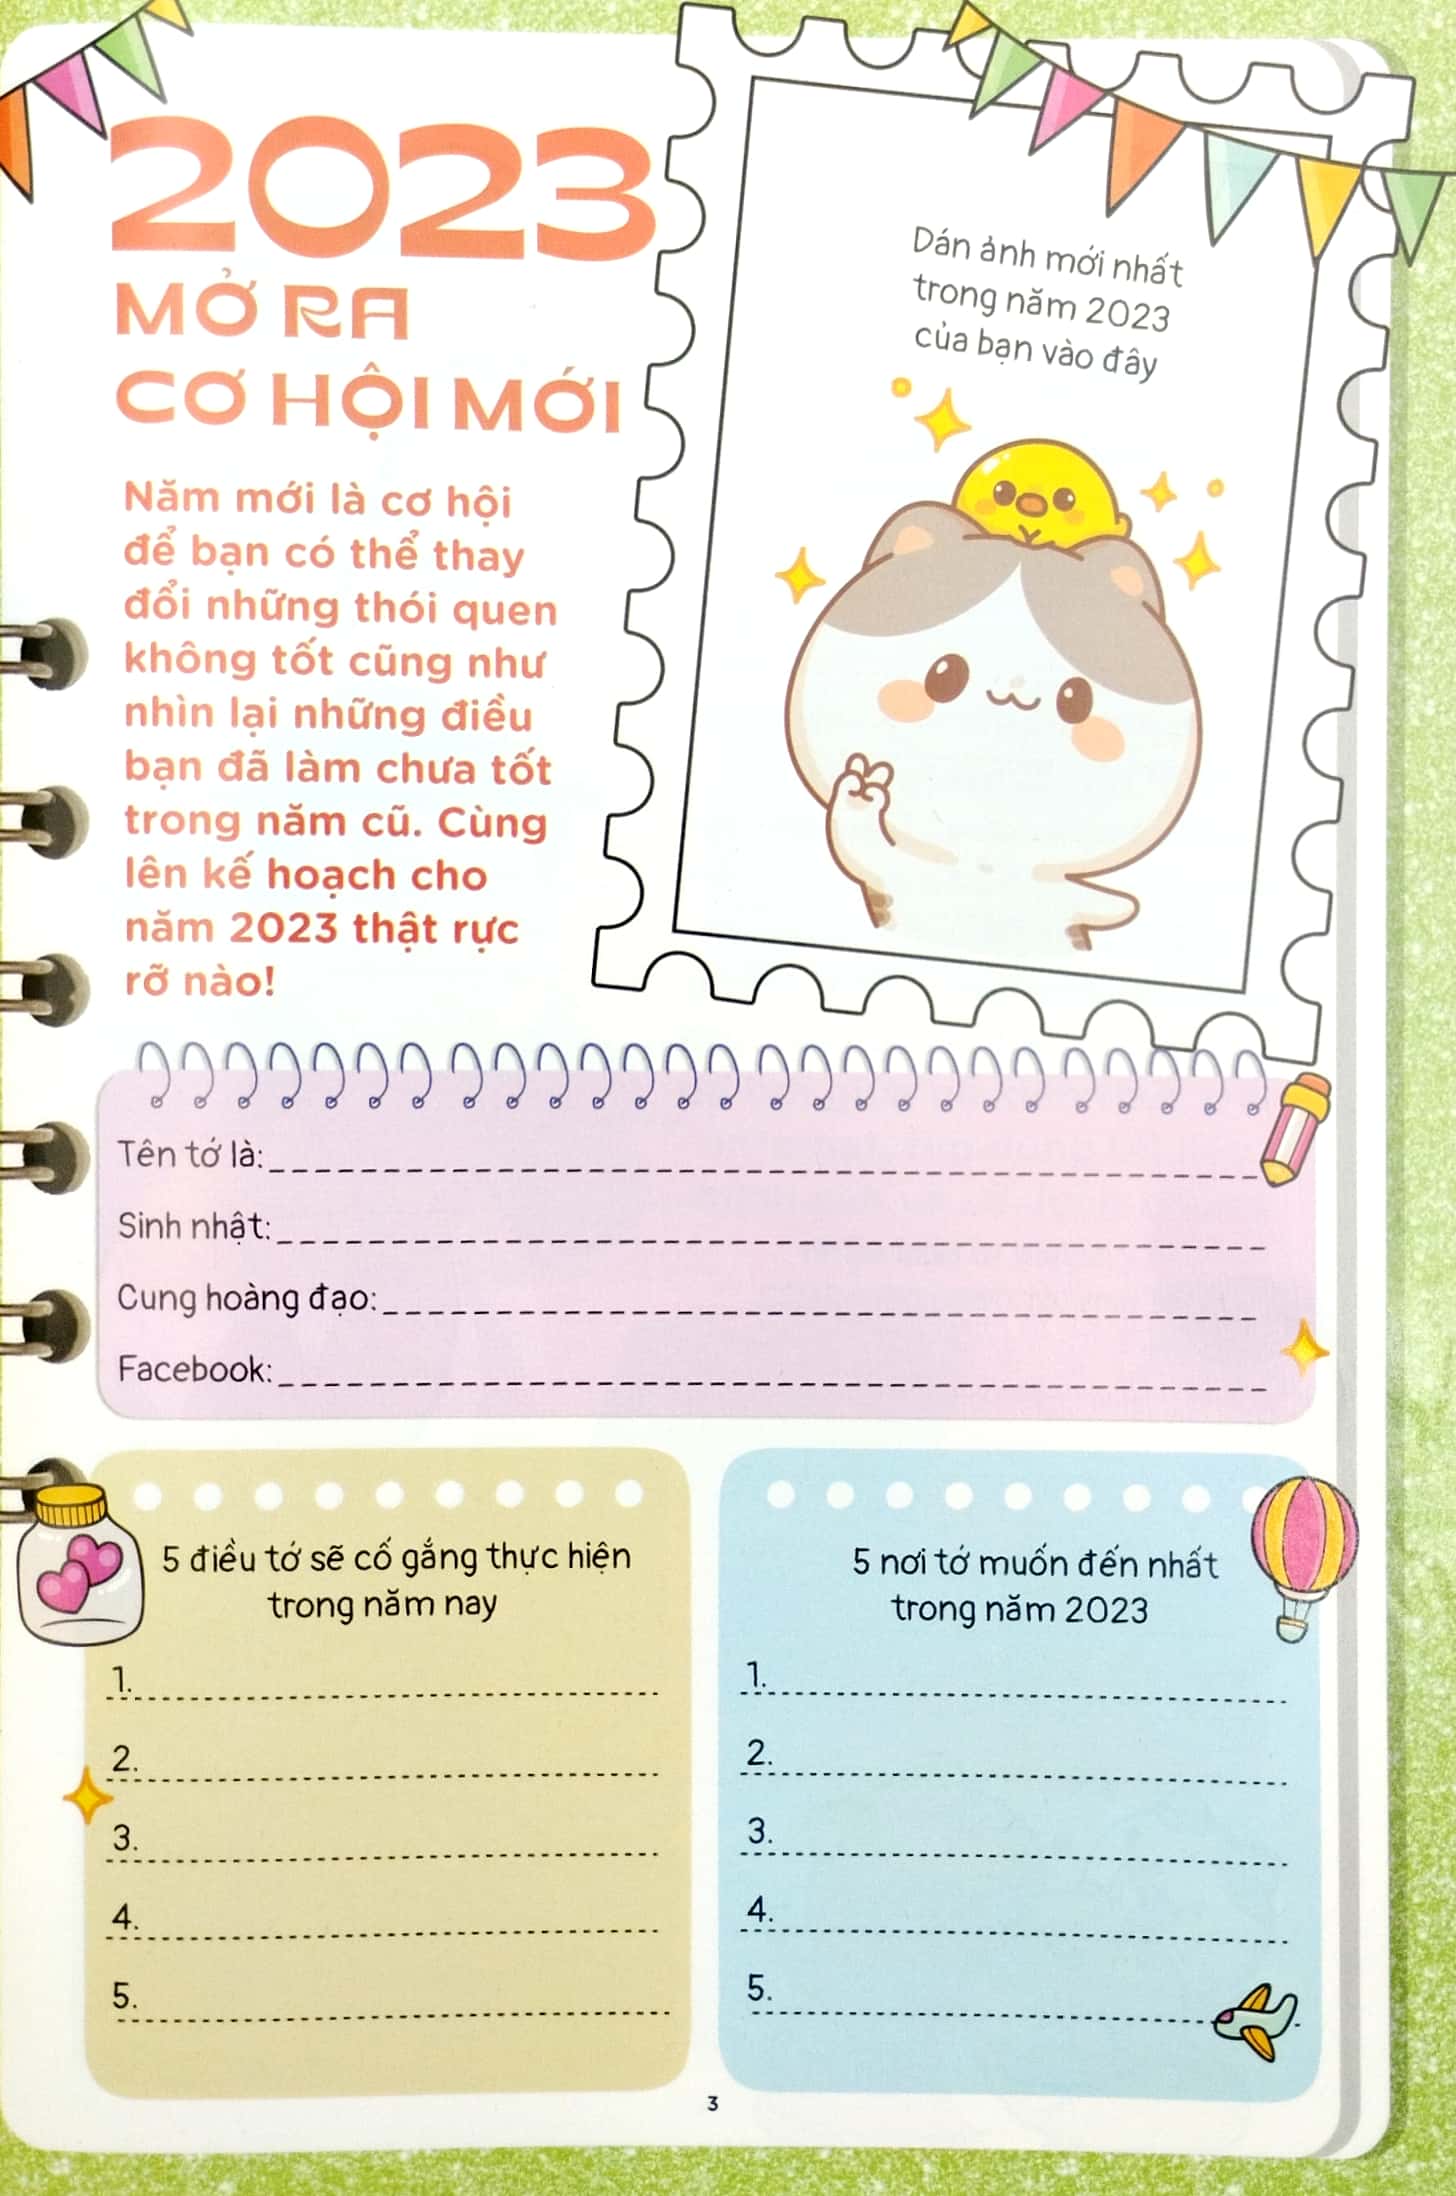 2023
MỞ RA
CƠ HỘI MỚI
Năm mới là cơ hội
để bạn có thể thay
đổi những thói quen
không tốt cũng như
nhìn lại những điều
bạn đã làm chưa tốt
trong năm cũ. Cùng
lên kế hoạch cho
năm 2023 thật rực
rỡ nào!
Dán ảnh mới nhất
trong năm 2023
của bạn vào đây
Tên tớ là:
Sinh nhật:
Cung hoàng đạo:
Facebook:
5 điều tớ sẽ cố gắng thực hiện
trong năm nay
1.
2.
3.
4.
5.
5 nơi tớ muốn đến nhất
trong năm 2023
1.
2.
3.
4.
5.
3